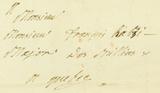 A
Monsieur
Monsieur François
Major Des Milices
a quebec